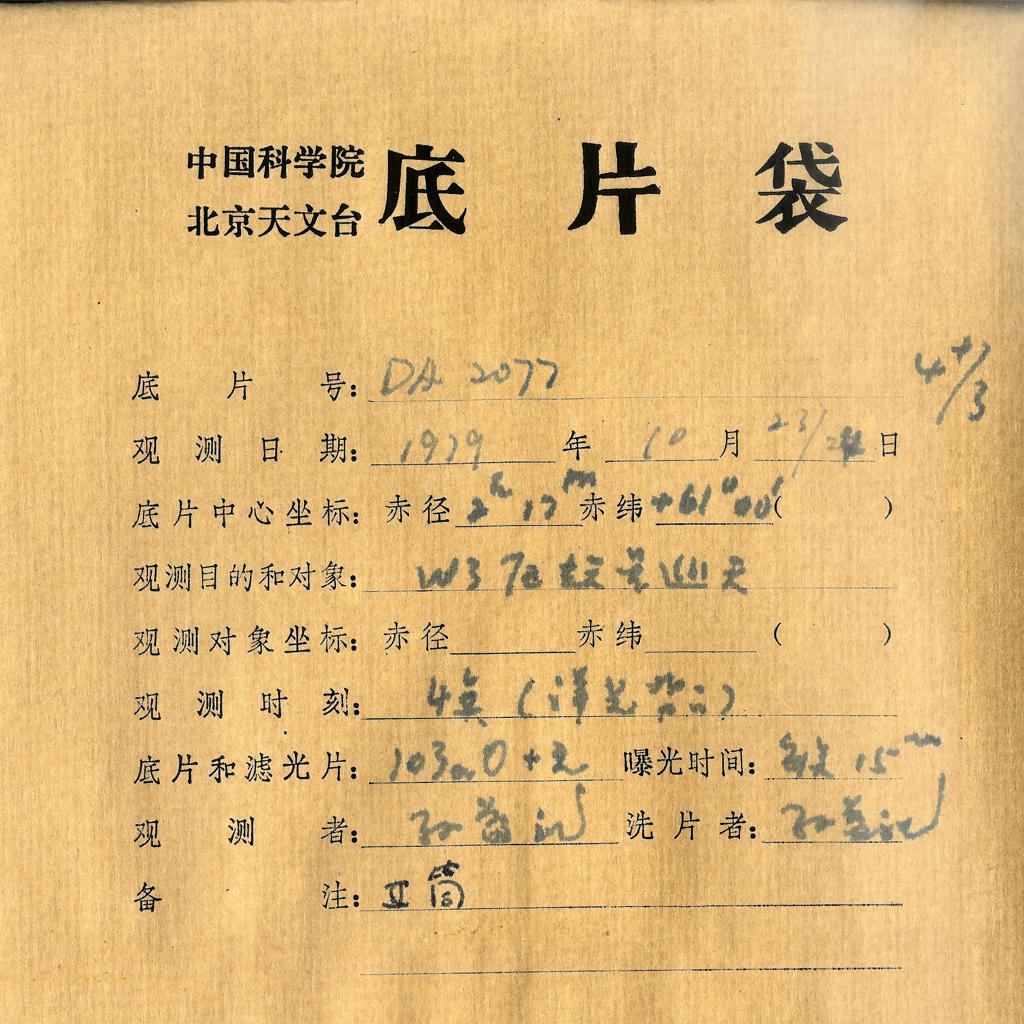 中国科学院
北京天文台
底片袋
4+/3
底片号：DA 2077
观测日期：1979年10月23/24日
底片中心坐标：赤径2h17m赤纬+61°00′（ ）
观测目的和对象：W3 巡天
观测对象坐标：赤径 赤纬 （ ）
观测时刻：4点（详见背面）
底片和滤光片：103aO+无 曝光时间：15m
观测者：孙益礼 洗片者：孙益礼
备注：II筒